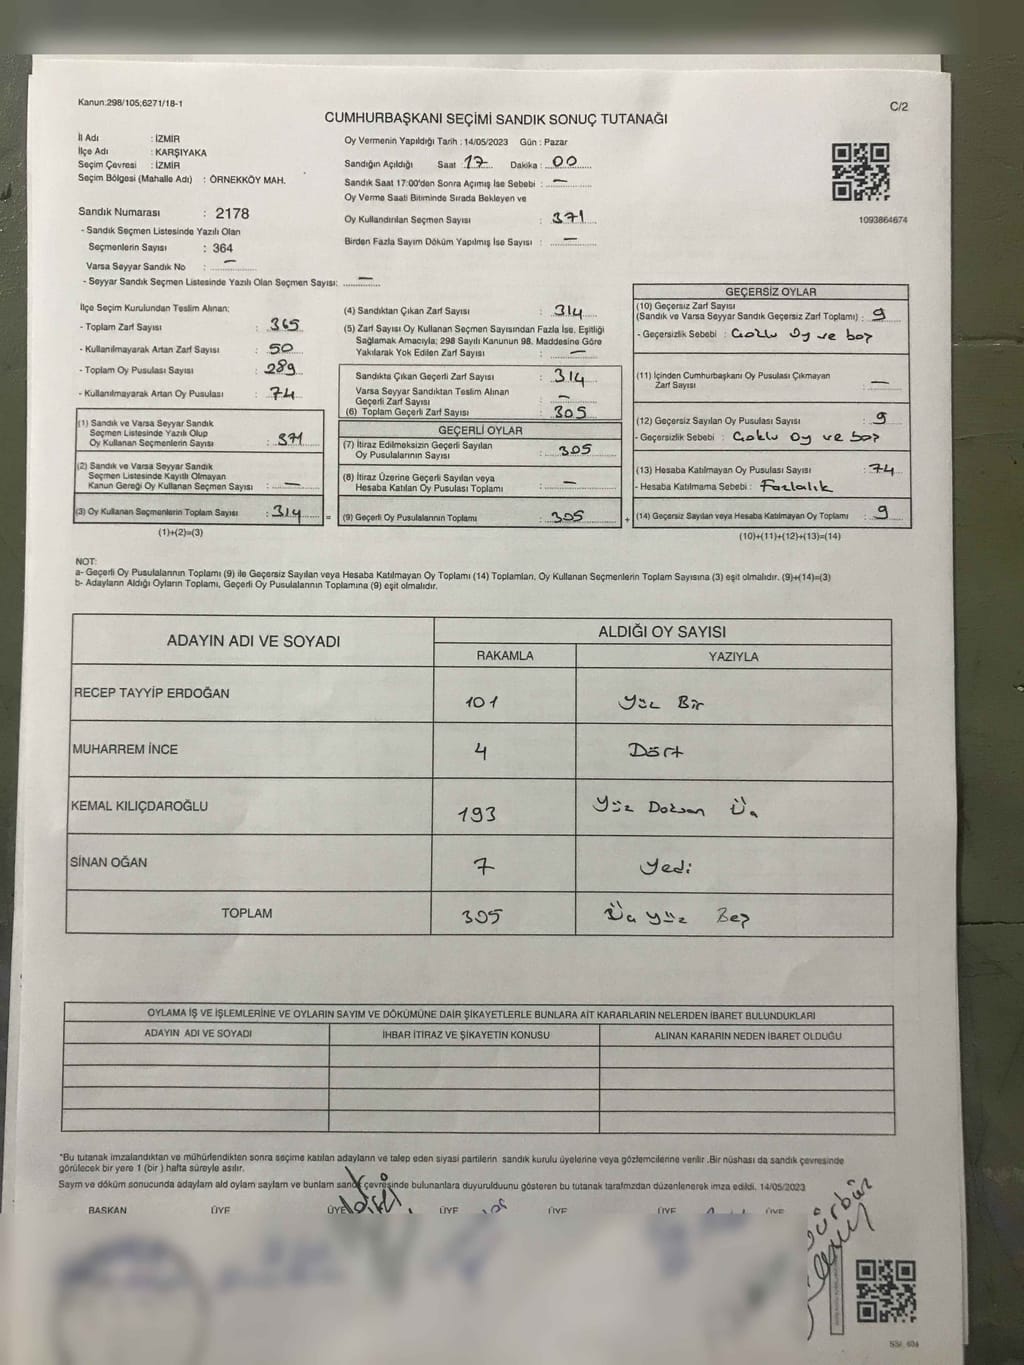 Kanun.298/105;6271/18-1
C/2
CUMHURBAŞKANI SEÇİMİ SANDIK SONUÇ TUTANAĞI
İl Adı : İZMİR
İlçe Adı : KARŞIYAKA
Seçim Çevresi : İZMİR
Seçim Bölgesi (Mahalle Adı) : ÖRNEKKÖY MAH.
Sandık Numarası : 2178
- Sandık Seçmen Listesinde Yazılı Olan
Seçmenlerin Sayısı : 364
Varsa Seyyar Sandık No : —
- Seyyar Sandık Seçmen Listesinde Yazılı Olan Seçmen Sayısı: —
Oy Vermenin Yapıldığı Tarih : 14/05/2023 Gün : Pazar
Sandığın Açıldığı Saat 17 Dakika : 00
Sandık Saat 17:00'den Sonra Açılmış İse Sebebi : —
Oy Verme Saati Bitiminde Sırada Bekleyen ve
Oy Kullandırılan Seçmen Sayısı : 371
Birden Fazla Sayım Döküm Yapılmış İse Sayısı : —
1093864674
İlçe Seçim Kurulundan Teslim Alınan:
- Toplam Zarf Sayısı : 365
- Kullanılmayarak Artan Zarf Sayısı : 50
- Toplam Oy Pusulası Sayısı : 289
- Kullanılmayarak Artan Oy Pusulası : 74
(1) Sandık ve Varsa Seyyar Sandık
Seçmen Listesinde Yazılı Olup
Oy Kullanan Seçmenlerin Sayısı : 371
(2) Sandık ve Varsa Seyyar Sandık
Seçmen Listesinde Kayıtlı Olmayan
Kanun Gereği Oy Kullanan Seçmen Sayısı : —
(3) Oy Kullanan Seçmenlerin Toplam Sayısı : 314 =
(1)+(2)=(3)
(4) Sandıktan Çıkan Zarf Sayısı : 314
(5) Zarf Sayısı Oy Kullanan Seçmen Sayısından Fazla İse, Eşitliği
Sağlamak Amacıyla; 298 Sayılı Kanunun 98. Maddesine Göre
Yakılarak Yok Edilen Zarf Sayısı : —
Sandıkta Çıkan Geçerli Zarf Sayısı : 314
Varsa Seyyar Sandıktan Teslim Alınan
Geçerli Zarf Sayısı : —
(6) Toplam Geçerli Zarf Sayısı : 305
GEÇERLİ OYLAR
(7) İtiraz Edilmeksizin Geçerli Sayılan
Oy Pusulalarının Sayısı : 305
(8) İtiraz Üzerine Geçerli Sayılan veya
Hesaba Katılan Oy Pusulası Toplamı : —
(9) Geçerli Oy Pusulalarının Toplamı : 305 +
GEÇERSİZ OYLAR
(10) Geçersiz Zarf Sayısı
(Sandık ve Varsa Seyyar Sandık Geçersiz Zarf Toplamı) : 9
- Geçersizlik Sebebi : Çoklu Oy ve boş
(11) İçinden Cumhurbaşkanı Oy Pusulası Çıkmayan
Zarf Sayısı : —
(12) Geçersiz Sayılan Oy Pusulası Sayısı : 9
- Geçersizlik Sebebi : Çoklu Oy ve boş
(13) Hesaba Katılmayan Oy Pusulası Sayısı : 74
- Hesaba Katılmama Sebebi : Fazlalık
(14) Geçersiz Sayılan veya Hesaba Katılmayan Oy Toplamı : 9
(10)+(11)+(12)+(13)=(14)
NOT:
a- Geçerli Oy Pusulalarının Toplamı (9) ile Geçersiz Sayılan veya Hesaba Katılmayan Oy Toplamı (14) Toplamları, Oy Kullanan Seçmenlerin Toplam Sayısına (3) eşit olmalıdır. (9)+(14)=(3)
b- Adayların Aldığı Oyların Toplamı, Geçerli Oy Pusulalarının Toplamına (9) eşit olmalıdır.
ADAYIN ADI VE SOYADI
ALDIĞI OY SAYISI
RAKAMLA YAZIYLA
RECEP TAYYİP ERDOĞAN 101 Yüz Bir
MUHARREM İNCE 4 Dört
KEMAL KILIÇDAROĞLU 193 Yüz Doksan Üç
SİNAN OĞAN 7 Yedi
TOPLAM 305 Üç Yüz Beş
OYLAMA İŞ VE İŞLEMLERİNE VE OYLARIN SAYIM VE DÖKÜMÜNE DAİR ŞİKAYETLERLE BUNLARA AİT KARARLARIN NELERDEN İBARET BULUNDUKLARI
ADAYIN ADI VE SOYADI İHBAR İTİRAZ VE ŞİKAYETİN KONUSU ALINAN KARARIN NEDEN İBARET OLDUĞU
"Bu tutanak imzalandıktan ve mühürlendikten sonra seçime katılan adayların ve talep eden siyasi partilerin sandık kurulu üyelerine veya gözlemcilerine verilir .Bir nüshası da sandık çevresinde
görülecek bir yere 1 (bir ) hafta süreyle asılır.
Sayım ve döküm sonucunda adaylam ald oylam saylam ve bunlam sandk çevresinde bulunanlara duyurulduunu gösteren bu tutanak tarafmzdan düzenlenerek imza edildi. 14/05/2023
BAŞKAN ÜYE ÜYE ÜYE ÜYE ÜYE ÜYE